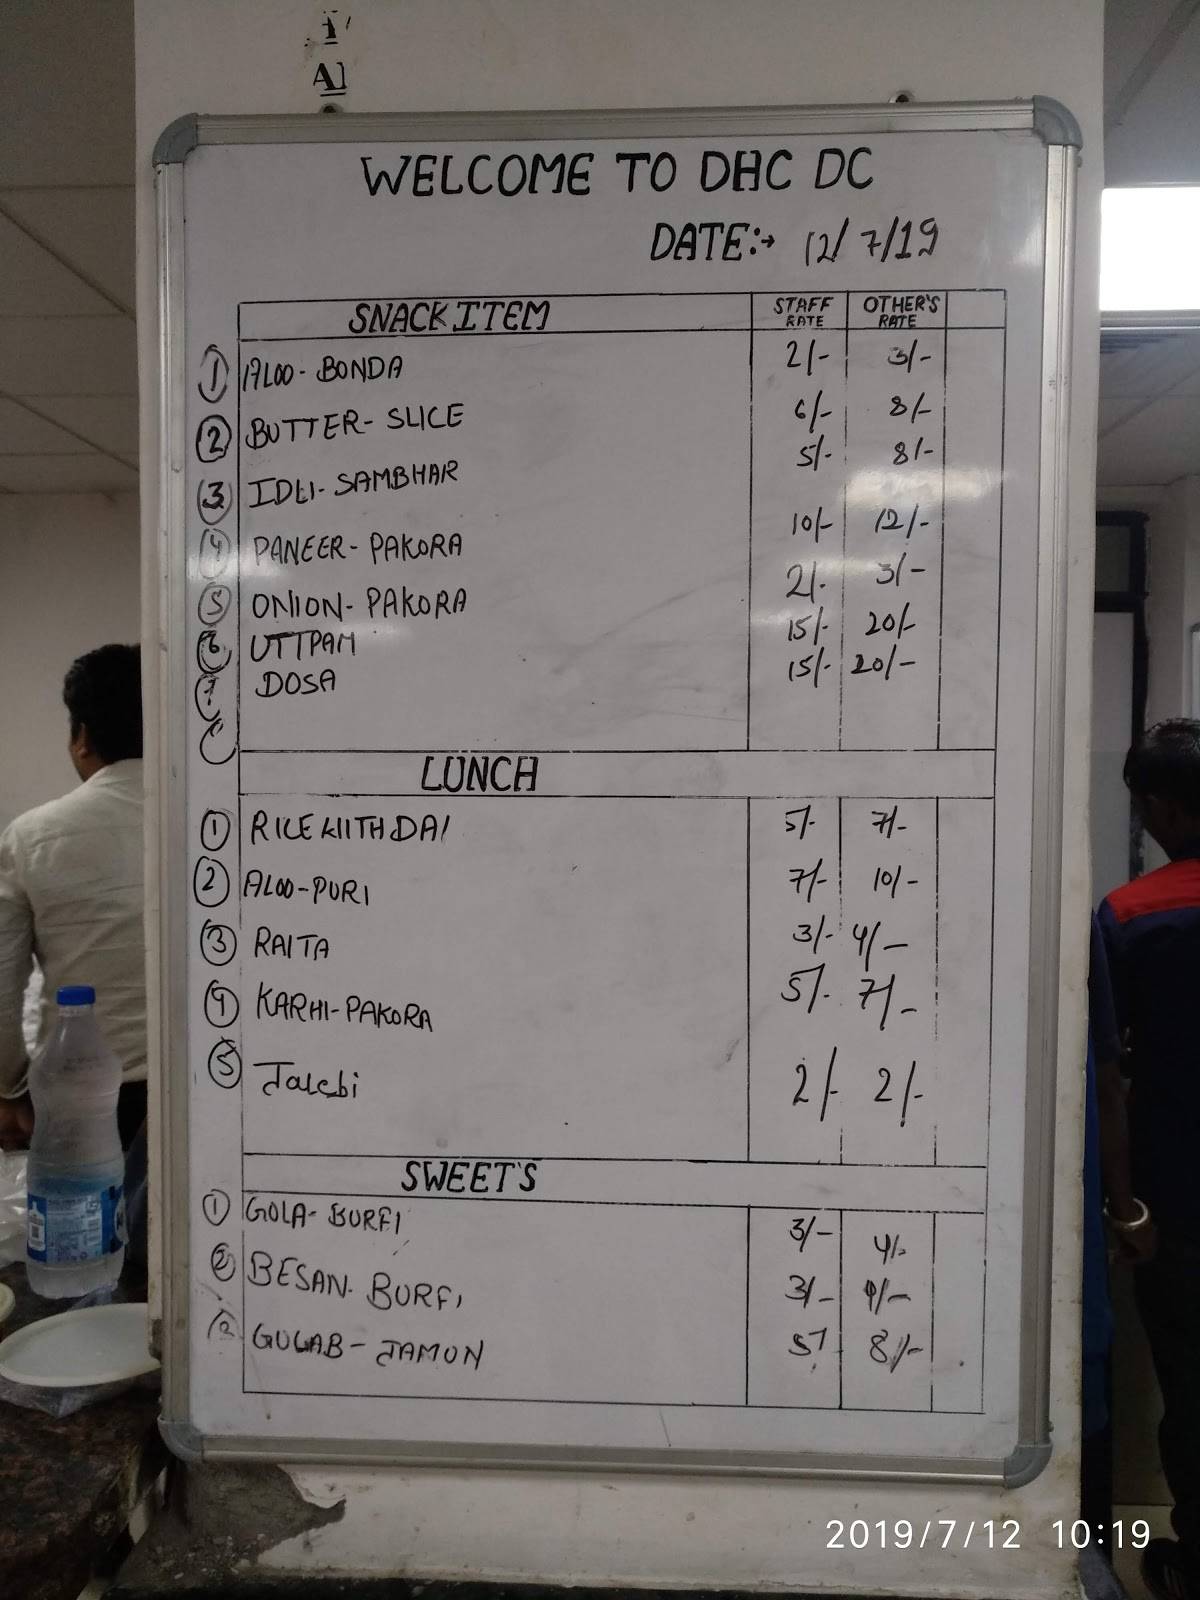 A]
WELCOME TO DHC DC
DATE:→ 12/7/19
SNACK ITEM STAFF RATE OTHER'S RATE
1 ALOO-BONDA 2/- 3/-
2 BUTTER-SLICE 6/- 8/-
3 IDLI-SAMBHAR 5/- 8/-
4 PANEER-PAKORA 10/- 12/-
5 ONION-PAKORA 2/- 3/-
6 UTTPAM 15/- 20/-
7 DOSA 15/- 20/-
LUNCH
1 RICE WITH DAL 5/- 7/-
2 ALOO-PURI 7/- 10/-
3 RAITA 3/- 4/-
4 KARHI-PAKORA 5/- 7/-
5 Jalebi 2/- 2/-
SWEET'S
1 GOLA-BURFI 3/- 4/-
2 BESAN-BURFI 3/- 4/-
3 GULAB-JAMUN 5/- 8/-
2019/7/12 10:19